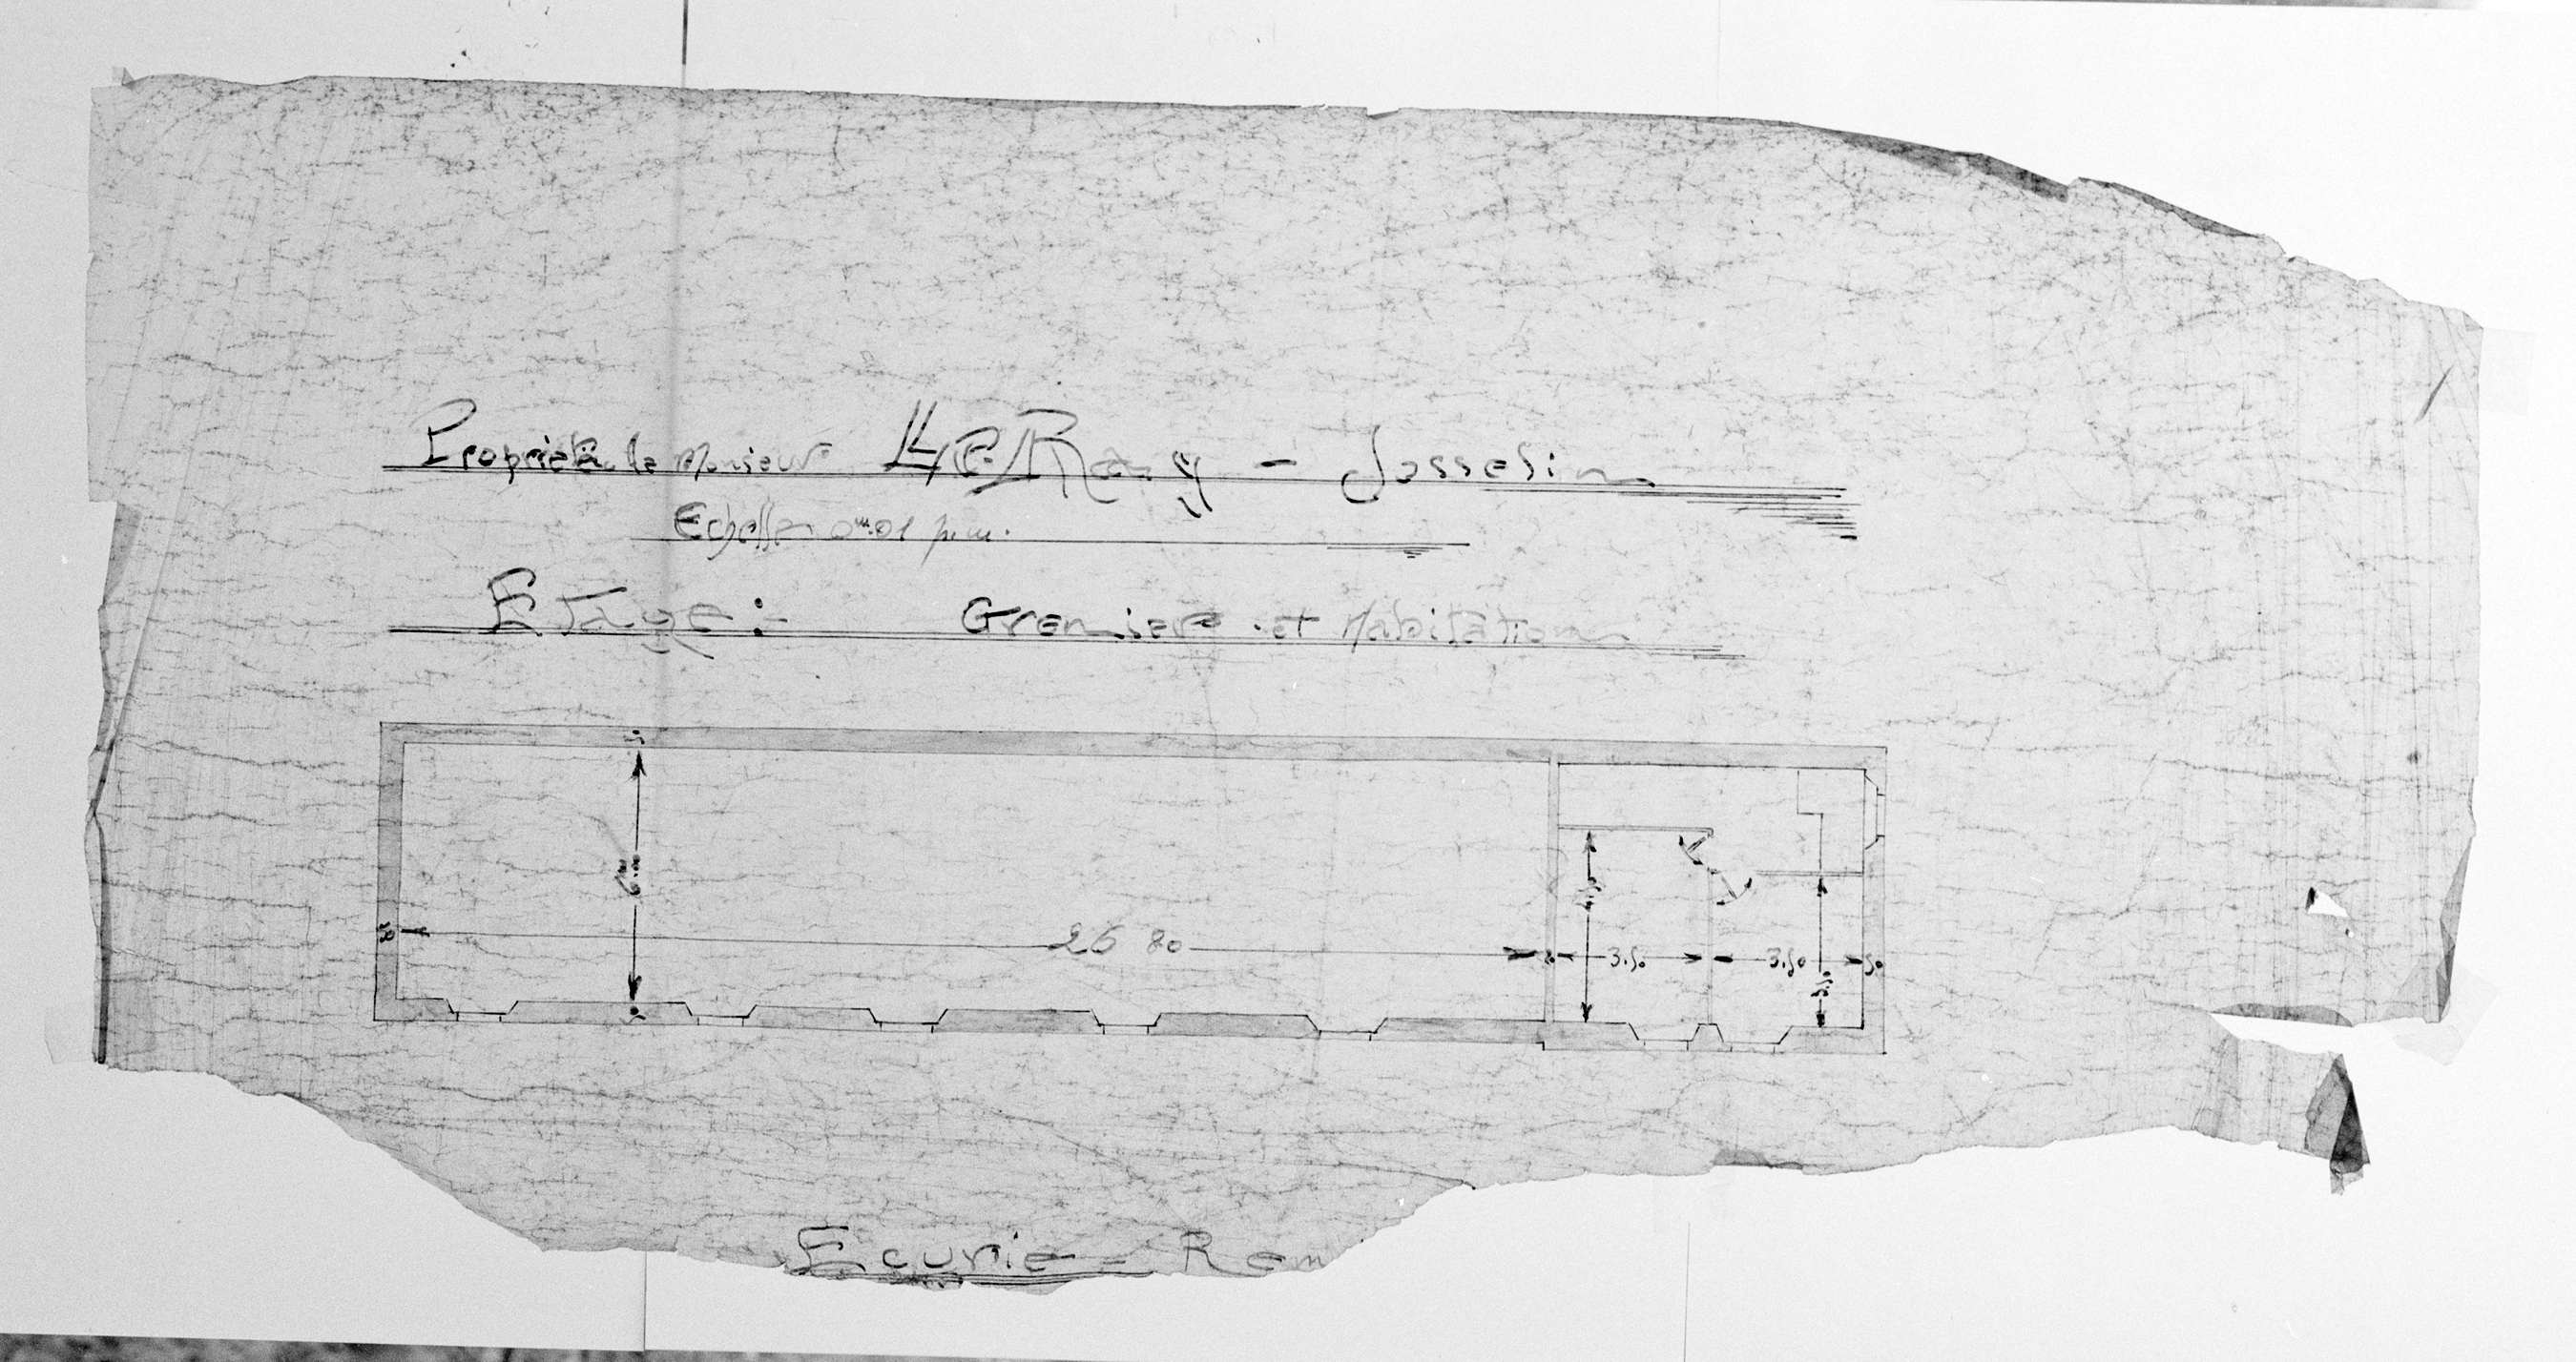 Propriété de Monsieur - Josselin
Echelle 0m01 p.m.
Etage:- Greniers et Habitation
26 80
3.50
3.50
50
Ecurie - Rem